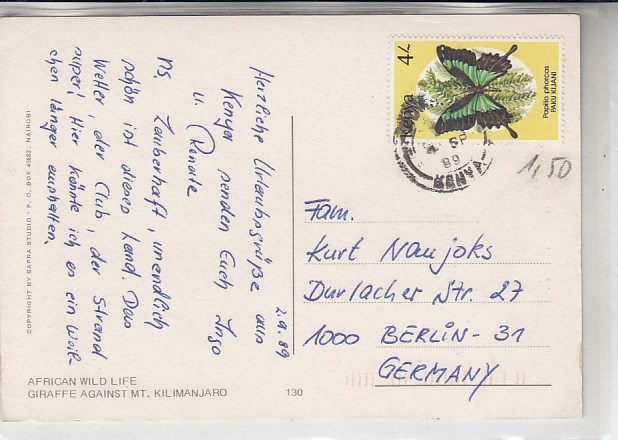 2.9.89
Herzliche Urlaubsgrüße aus
Kenya senden Euch Ingo
u. Renate
PS. Zauberhaft, unendlich
schön ist dieses Land. Das
Wetter, der Club, der Strand
super! Hier könnte ich es ein Weil-
chen länger aushalten.
COPYRIGHT BY SAPRA STUDIO - P. O. BOX 43882 - NAIROBI
AFRICAN WILD LIFE
GIRAFFE AGAINST MT. KILIMANJARO 130
4/-
Kenya
Papilio phorcas
PAKU KIJANI
SP
89
1,50
Fam.
Kurt Naujoks
Durlacher Str. 27
1000 BERLIN-31
GERMANY